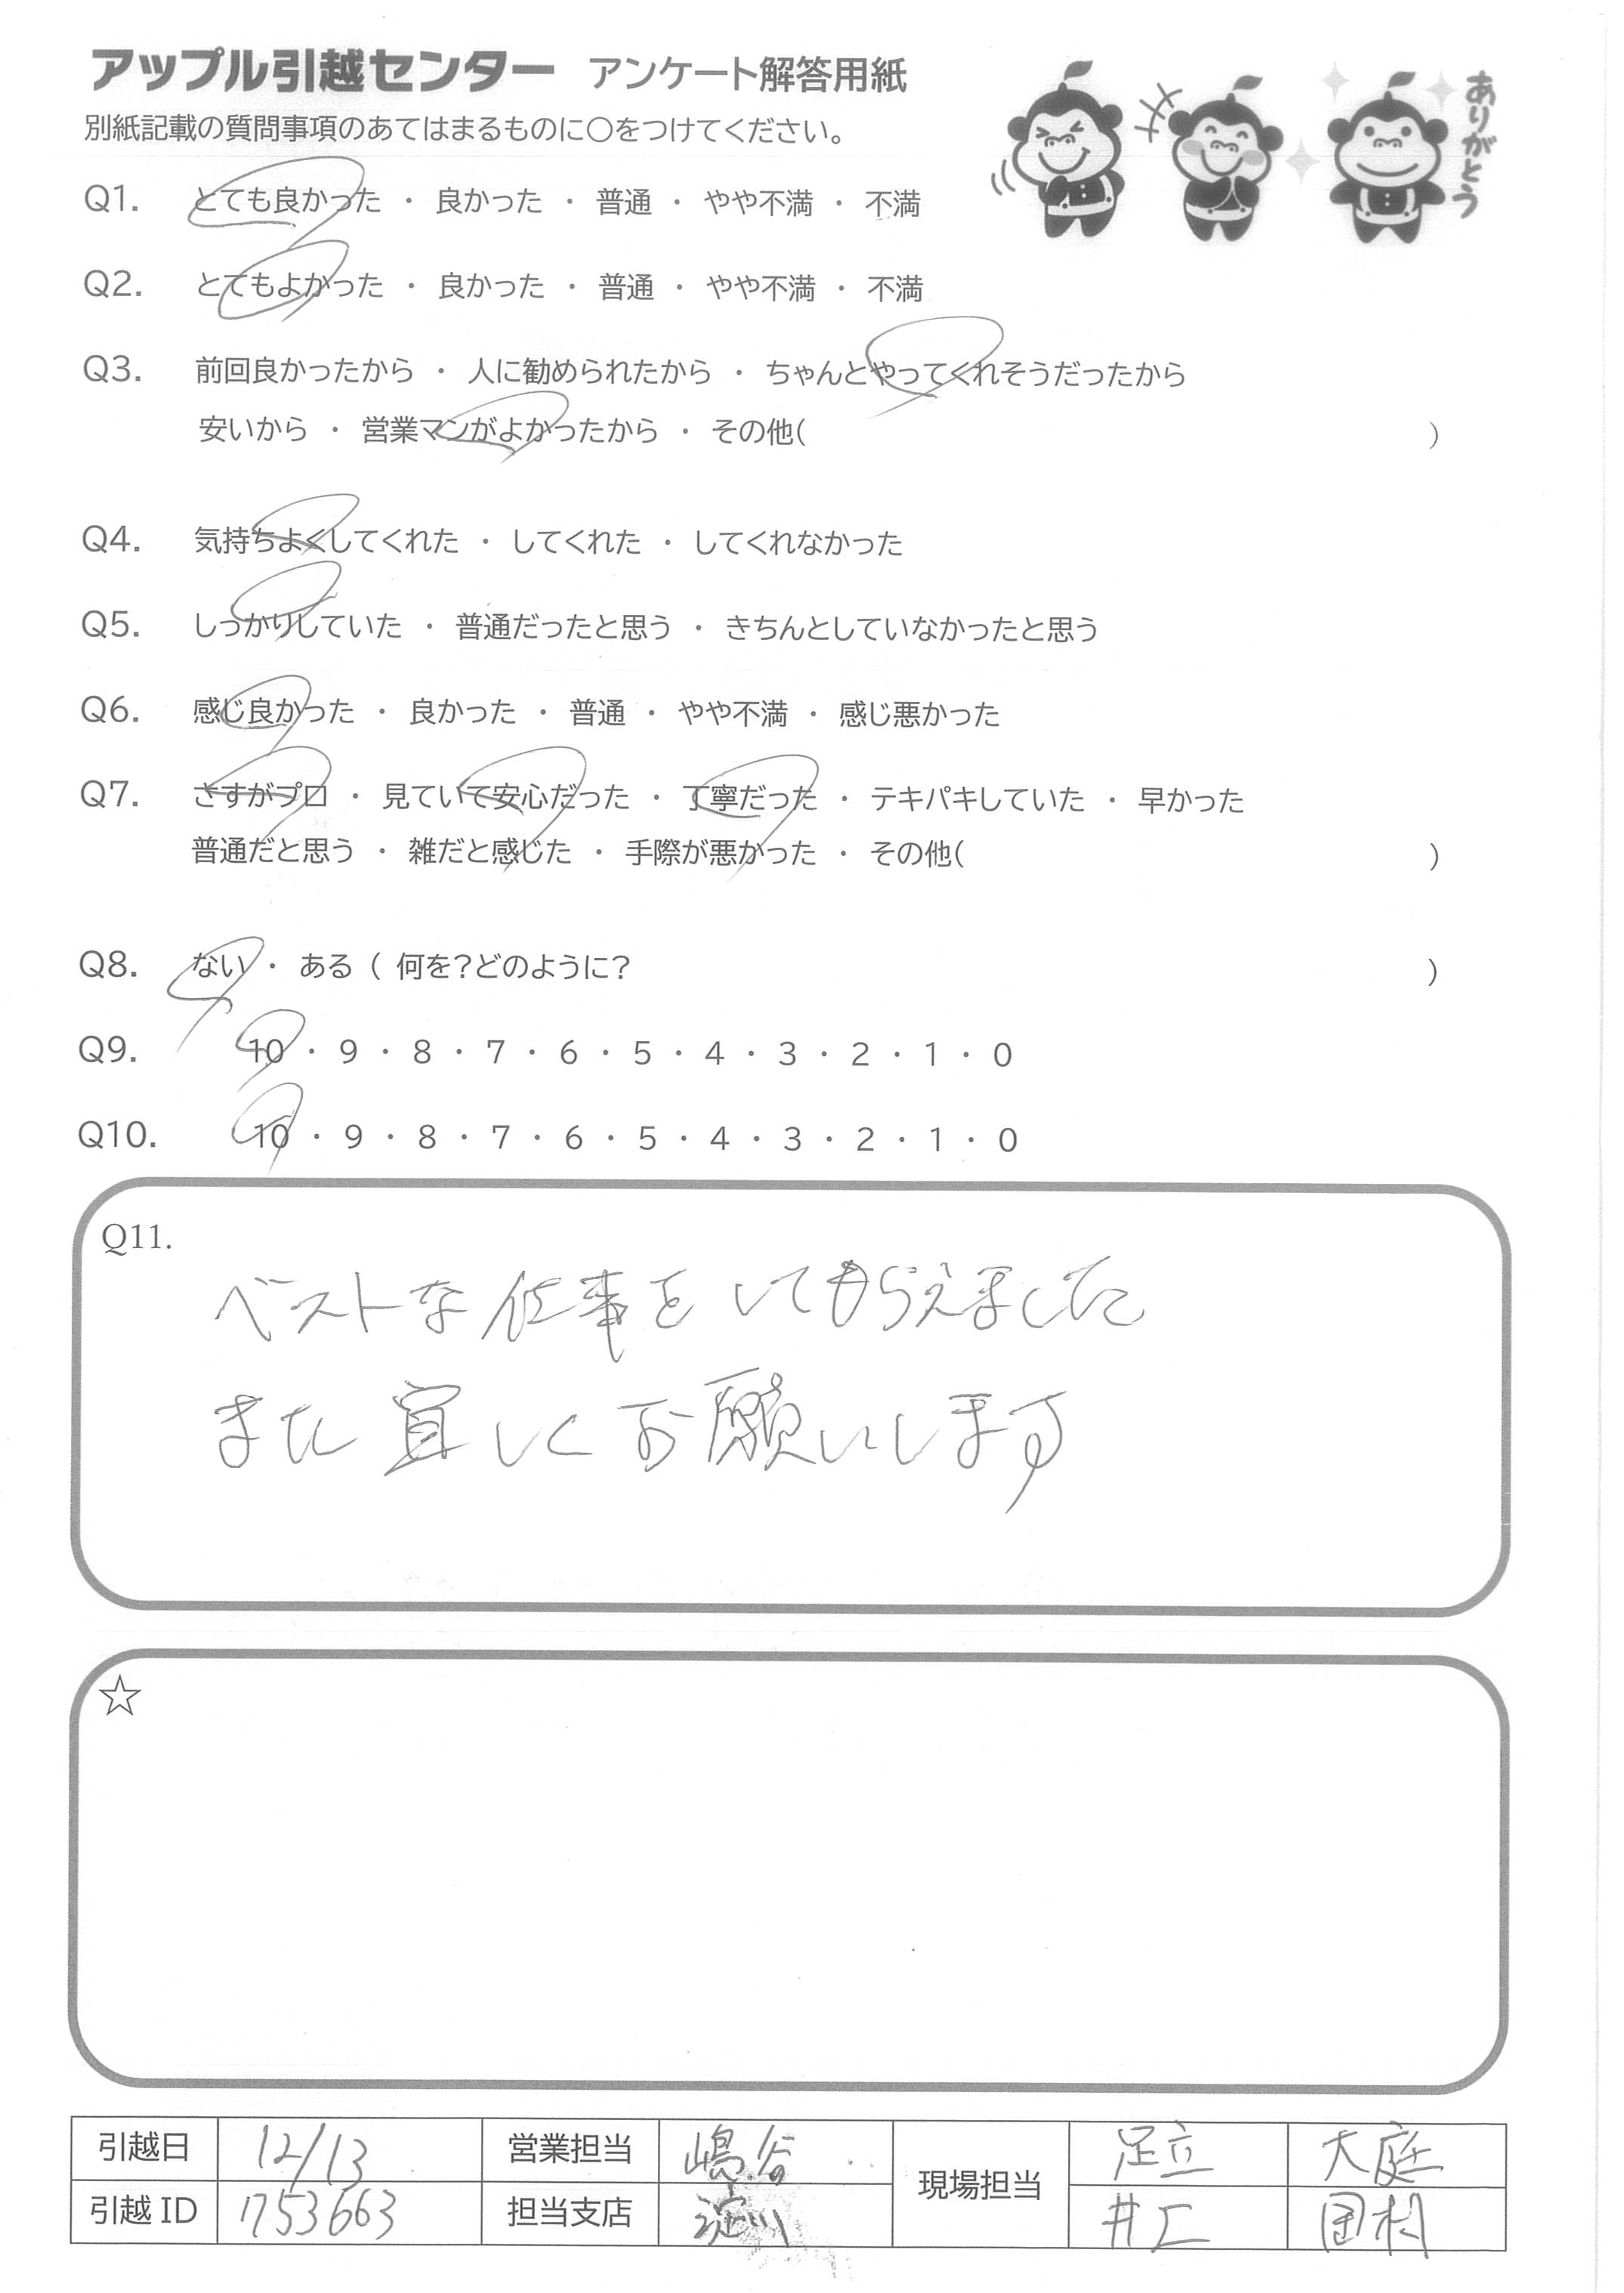 アップル引越センター アンケート解答用紙
別紙記載の質問事項のあてはまるものに○をつけてください。
ありがとう
Q1. とても良かった ・ 良かった ・ 普通 ・ やや不満 ・ 不満
Q2. とてもよかった ・ 良かった ・ 普通 ・ やや不満 ・ 不満
Q3. 前回良かったから ・ 人に勧められたから ・ ちゃんとやってくれそうだったから
安いから ・ 営業マンがよかったから ・ その他( )
Q4. 気持ちよくしてくれた ・ してくれた ・ してくれなかった
Q5. しっかりしていた ・ 普通だったと思う ・ きちんとしていなかったと思う
Q6. 感じ良かった ・ 良かった ・ 普通 ・ やや不満 ・ 感じ悪かった
Q7. さすがプロ ・ 見ていて安心だった ・ 丁寧だった ・ テキパキしていた ・ 早かった
普通だと思う ・ 雑だと感じた ・ 手際が悪かった ・ その他( )
Q8. ない ・ ある ( 何を?どのように? )
Q9. 10 ・ 9 ・ 8 ・ 7 ・ 6 ・ 5 ・ 4 ・ 3 ・ 2 ・ 1 ・ 0
Q10. 10 ・ 9 ・ 8 ・ 7 ・ 6 ・ 5 ・ 4 ・ 3 ・ 2 ・ 1 ・ 0
Q11.
ベストな仕事をしてもらえました
また宜しくお願いします
☆
引越日 12/13 営業担当 嶋谷 現場担当 足立 大庭
引越ID 1753663 担当支店 淀川 井上